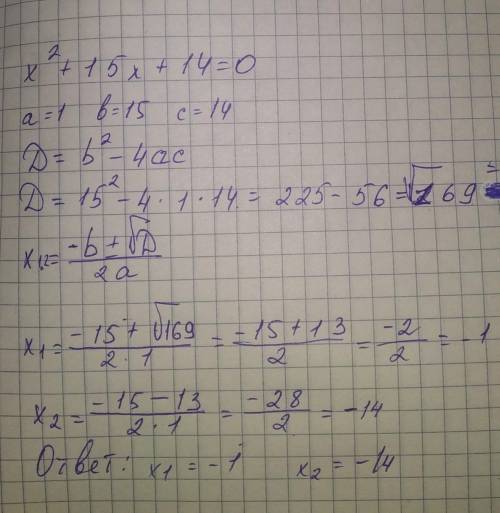 x² + 15x + 14 = 0
a = 1 b = 15 c = 14
D = b² - 4ac
D = 15² - 4 · 1 · 14 = 225 - 56 = √169 =
x₁,₂ = (-b + √D) / 2a
x₁ = (-15 + √169) / (2 · 1) = (-15 + 13) / 2 = -2 / 2 = -1
x₂ = (-15 - 13) / (2 · 1) = -28 / 2 = -14
Ответ: x₁ = -1 x₂ = -14